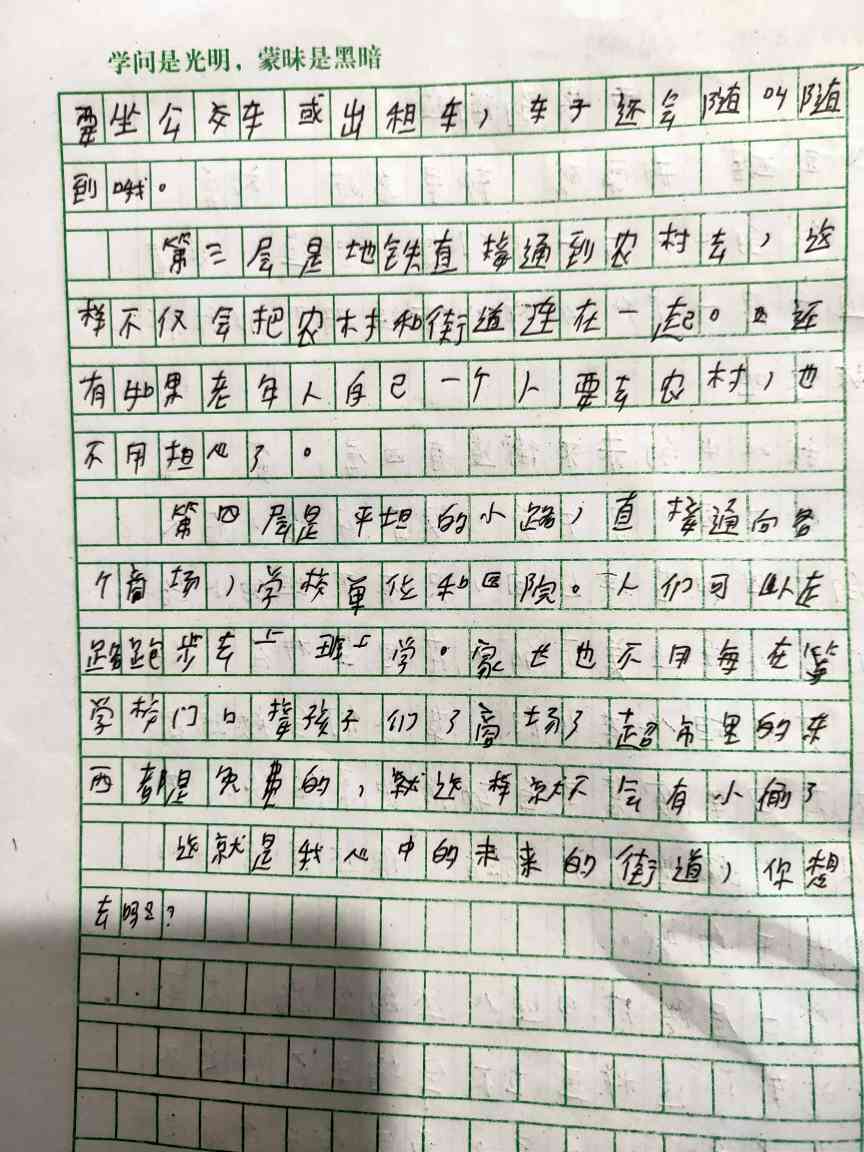 学问是光明，蒙昧是黑暗
要坐公交车或出租车，车子还会随叫随
到哦。
第三层是地铁直接通到农村去，这
样不仅会把农村和街道连在一起。还
有如果老年人自己一个人要去农村，也
不用担心了。
第四层是平坦的小路，直接通向各
个商场，学校单位和医院。人们可以走
路跑步去上班上学。家长也不用每在等
学校门口接孩子们了商场了超市里的东
西都是免费的，就这样就不会有小偷了
这就是我心中的未来的街道，你想
去吗？